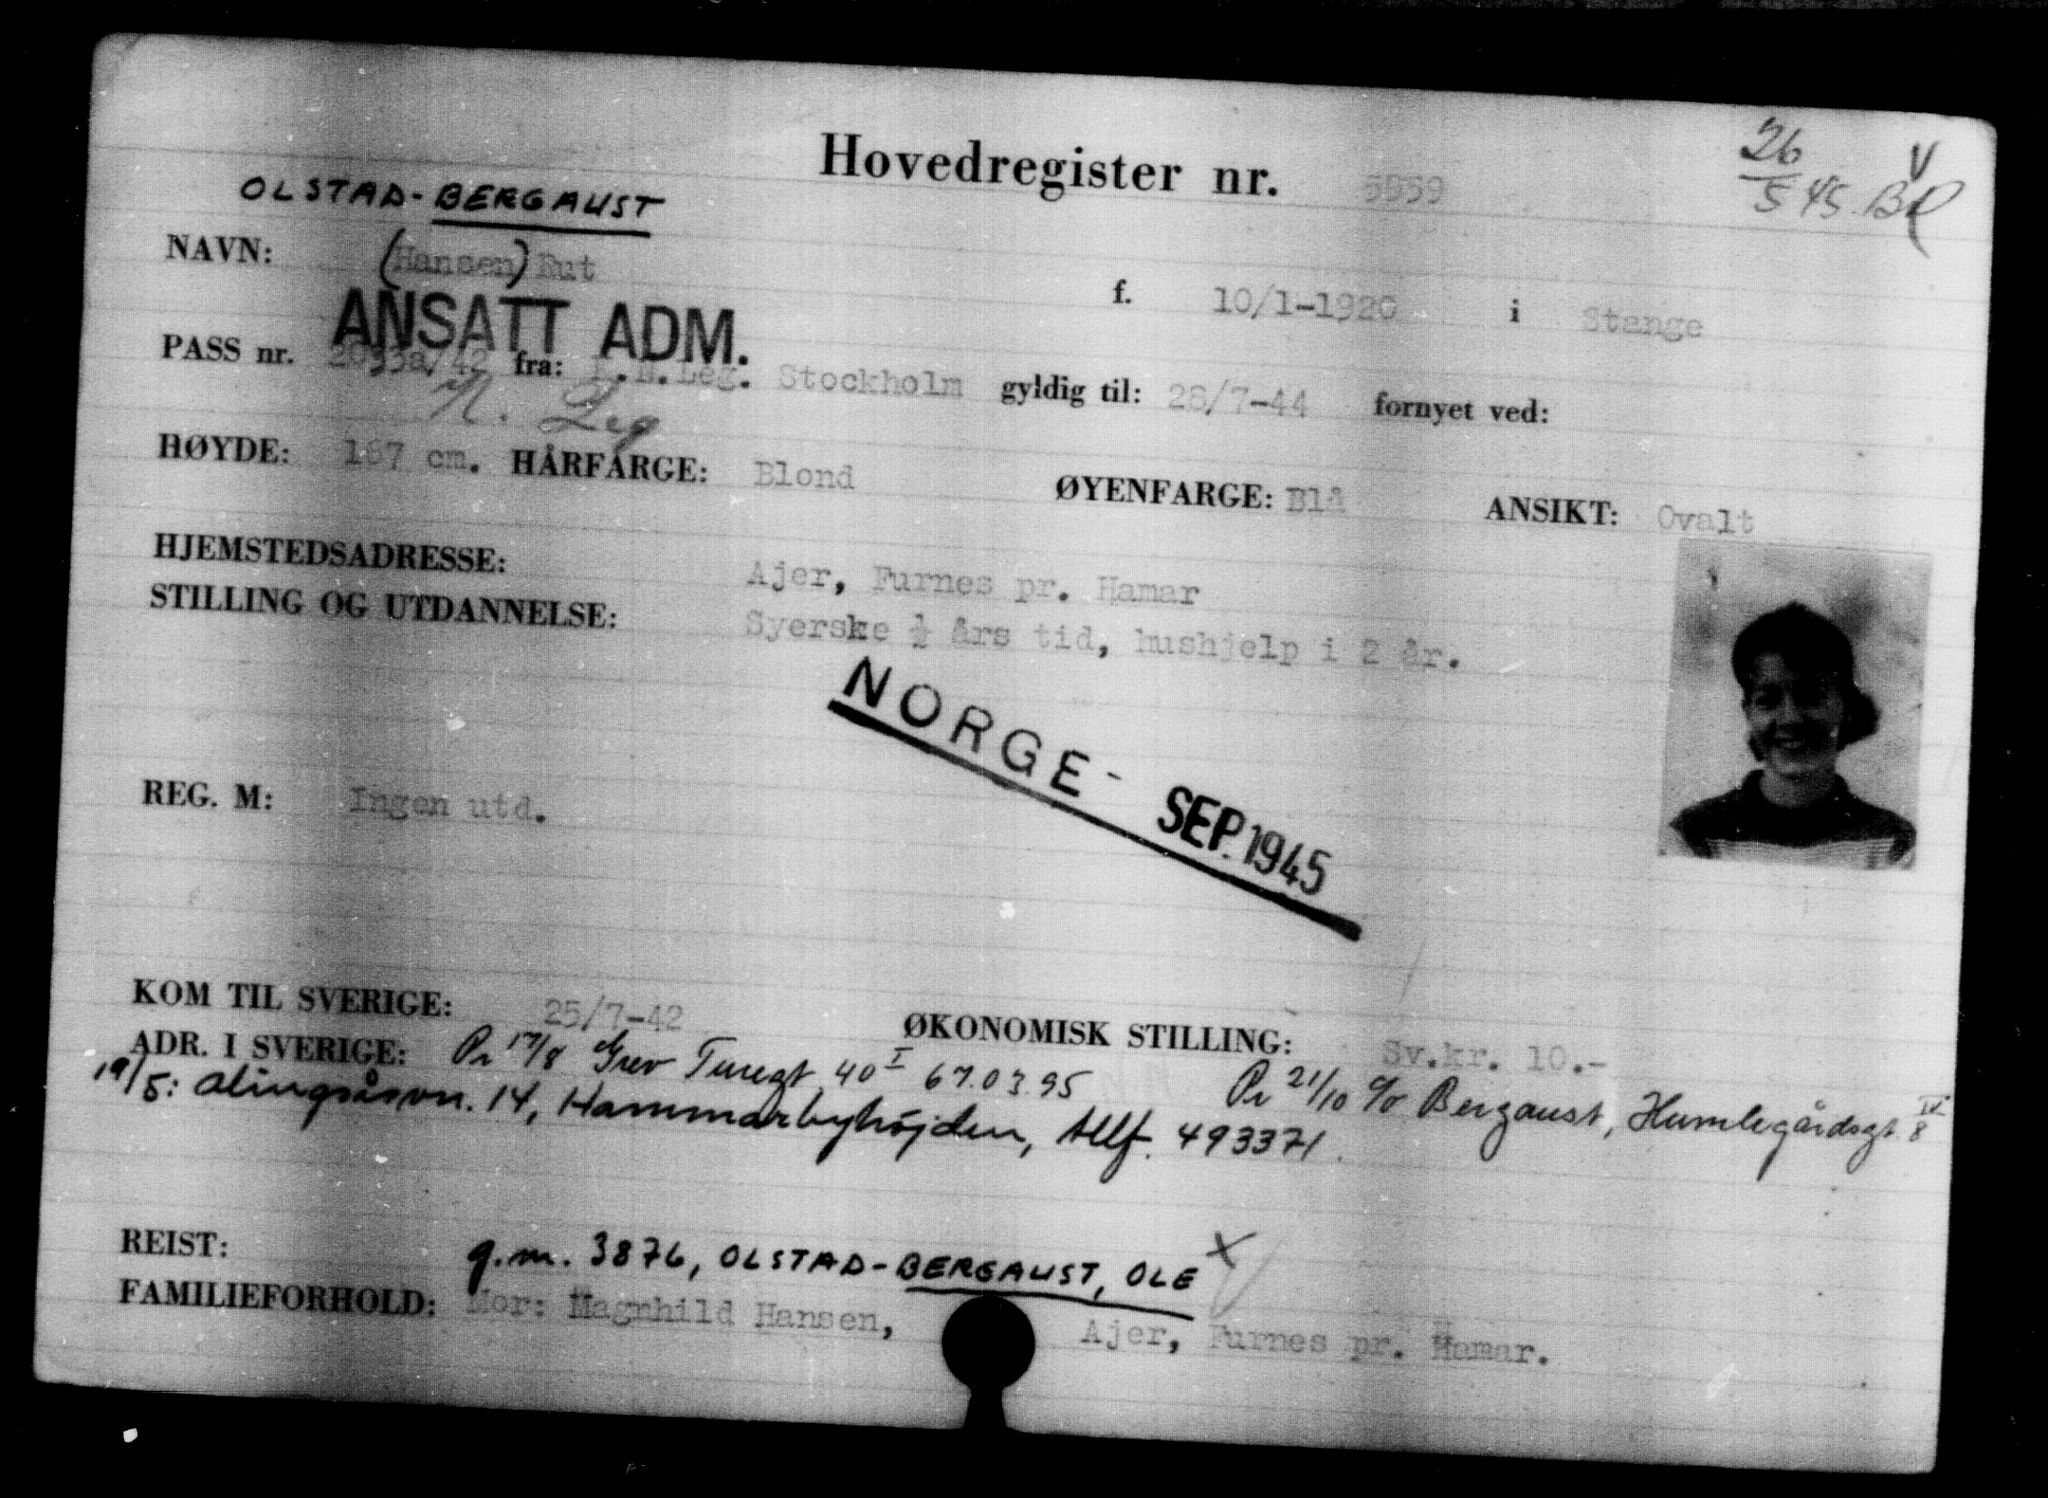 Hovedregister nr. 5959
26/5 45. V
OLSTAD-BERGAUST
NAVN: (Hansen) Rut f. 10/1-1920 i Stange
ANSATT ADM.
PASS nr. 2033a/42 fra: K.N.Leg. Stockholm gyldig til: 28/7-44 fornyet ved:
N. Leg
HØYDE: 167 cm. HÅRFARGE: Blond ØYENFARGE: Blå ANSIKT: Ovalt
HJEMSTEDSADRESSE: Ajer, Furnes pr. Hamar
STILLING OG UTDANNELSE: Syerske ½ års tid, hushjelp i 2 år.
NORGE - SEP. 1945
REG. M: Ingen utd.
KOM TIL SVERIGE: 25/7-42 ØKONOMISK STILLING: Sv.kr. 10.-
ADR. I SVERIGE: Pr 17/8 Grev Turegt 40 I 67.03.95 Pr 21/10 c/o Bergaust, Humlegårdsgt. 8 IV
19/5: Alingsåsvn. 14, Hammarbyhøjden, tllf. 493371.
REIST: g.m. 3876, OLSTAD-BERGAUST, OLE X
FAMILIEFORHOLD: Mor: Magnhild Hansen, Ajer, Furnes pr. Hamar.